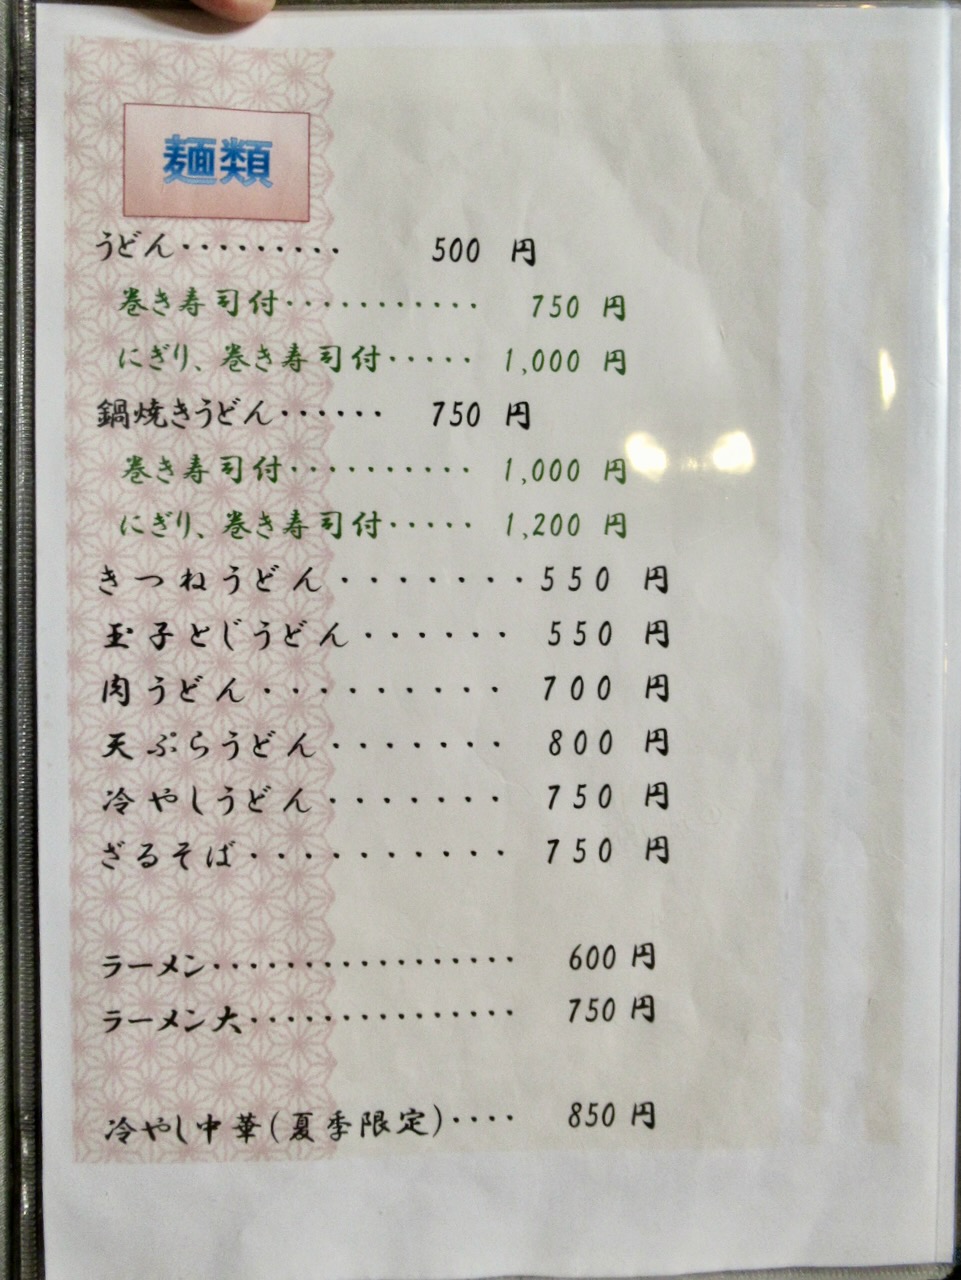 麺類
うどん・・・・・・・・・ 500 円
巻き寿司付・・・・・・・・・・・ 750 円
にぎり、巻き寿司付・・・・・ 1,000 円
鍋焼きうどん・・・・・・ 750 円
巻き寿司付・・・・・・・・・・ 1,000 円
にぎり、巻き寿司付・・・・・ 1,200 円
きつねうどん・・・・・・・・550 円
玉子とじうどん・・・・・・ 550 円
肉うどん・・・・・・・・・ 700 円
天ぷらうどん・・・・・・・ 800 円
冷やしうどん・・・・・・・ 750 円
ざるそば・・・・・・・・・・ 750 円
ラーメン・・・・・・・・・・・・・・・・・ 600 円
ラーメン大・・・・・・・・・・・・・・・ 750 円
冷やし中華(夏季限定)・・・・ 850 円